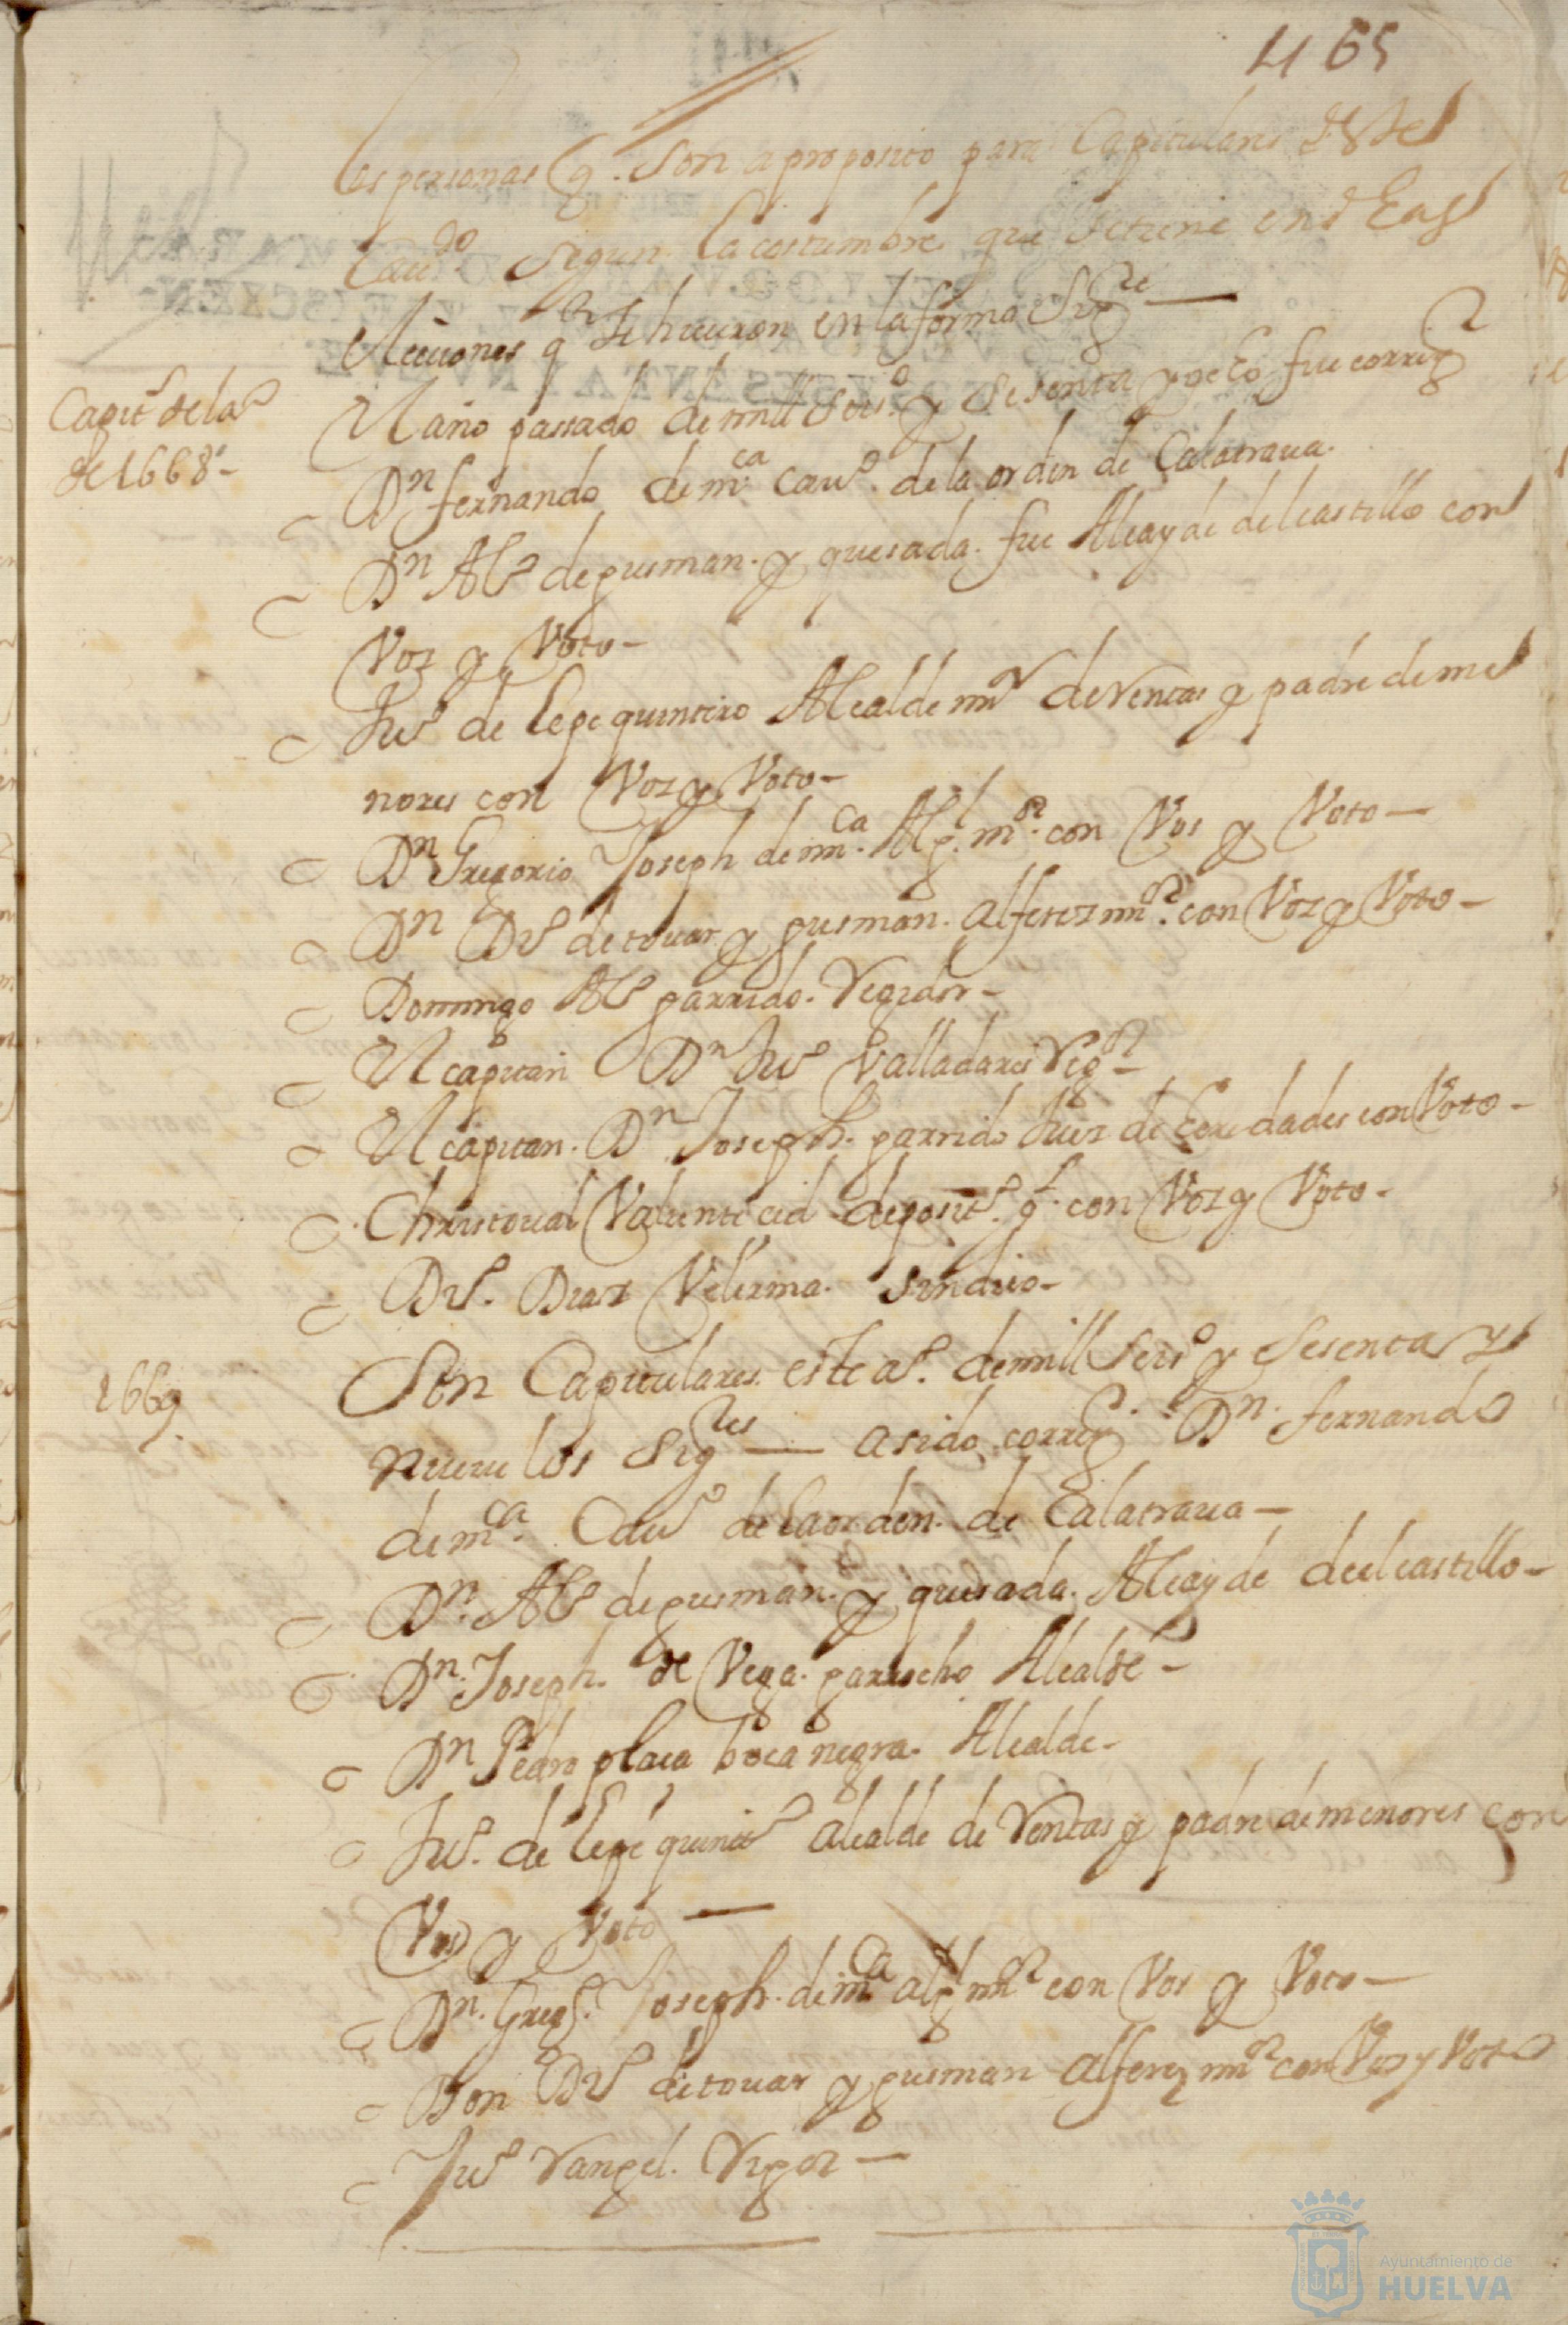 465
las personas q. son a proposito para Capitulares deste
Cavdo segun la costumbre que se tiene en las
elecciones q se hicieron en la forma sigte —
Capitres de la
de 1668 -
El año passado de mill seiso y sesenta y ocho fue corregr
Dn fernando de mca cavo de la orden de Calatraua.
Dn Alo de gusman y quesada. fue Alcayde del castillo con
Voz y Voto -
Juo de lepe quintero Alcalde mr de Ventas y padre de me
nores con Voz y Voto -
Dn Gregorio Joseph de mca Algl mor con Vos y Voto —
Dn Do de touar y gusman. alferez mor con Voz y Voto -
Domingo Alo garrido. Regidor -
El capitan Dn Juo Valladares Regor -
El capitan. Dn Joseph. garrido Juez de heredades con Voto -
Christoual Valiente cid deposito gl. con Voz y Voto -
Do. Diaz Velerma. Sindico -
1669
Son Capitulares este ao. de mill seiso y sesenta y
nueue los sigtes — a sido corregr Dn. fernando
de mca. Cavo de la orden. de Calatraua —
Dn. Alo de gusman. y quesada. Alcayde del castillo -
Dn. Joseph. de Vega. garrocho Alcalde -
Dn Pedro plaça bocanegra. Alcalde -
Juo. de lepe quinto alcalde de Ventas y padre de menores con
Vos y Voto —
Dn. Grego. Joseph. de mca algl mor con Vos y Voto —
Don Do de touar y gusman alferez mor con Voz y Voto
Juo Rangel. Rigor —
Ayuntamiento de
HUELVA